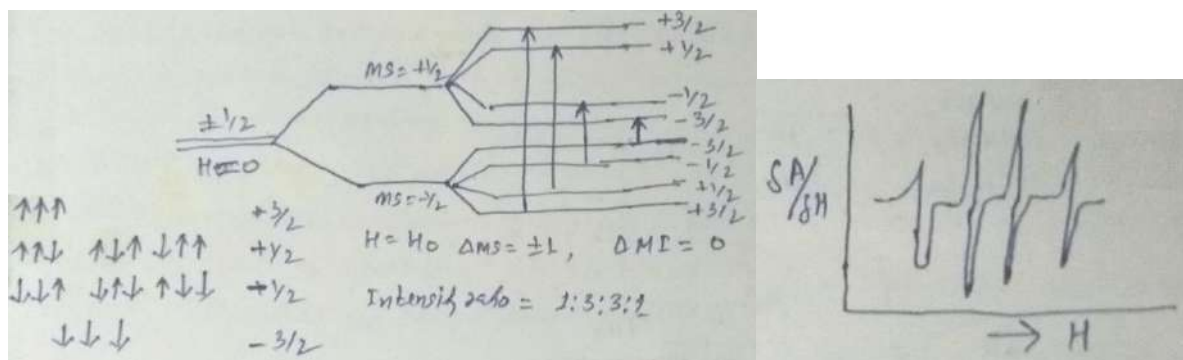 +3/2
+1/2
MS=+1/2
-1/2
-3/2
±1/2
H=0
-3/2
-1/2
+1/2
+3/2
MS=-1/2
↑↑↑ +3/2
↑↑↓ ↑↓↑ ↓↑↑ +1/2
↓↓↑ ↓↑↓ ↑↓↓ +1/2
↓↓↓ -3/2
H=H0 ΔMS=±1, ΔMI=0
Intensity ratio = 1:3:3:1
δA/δH
→ H